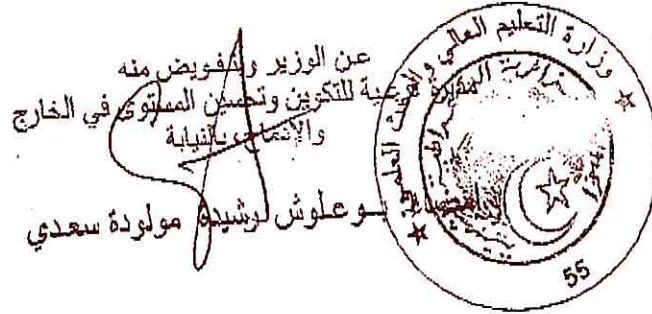 عن الوزير وبتفويض منه
المديرة الفرعية للتكوين وتحسين المستوى في الخارج
والإدماج بالنيابة
بوعلوش رشيدة مولودة سعدي
وزارة التعليم العالي والبحث العلمي
55